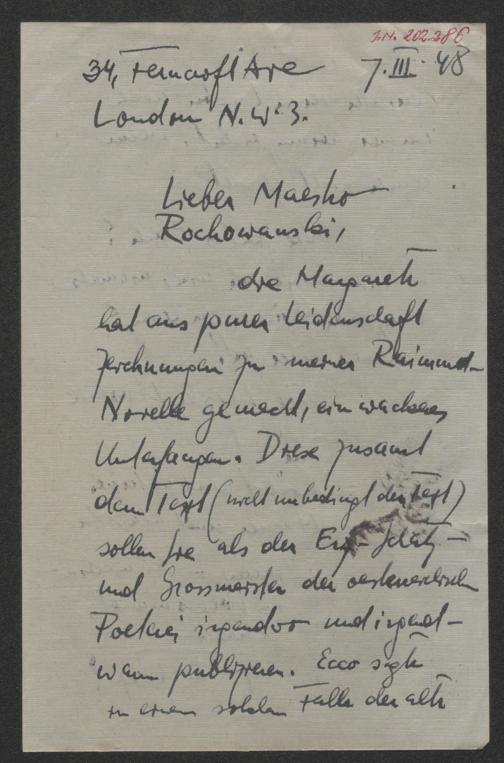 I.N. 202.386
34, Ferncroft Ave 7. III. 48
London N.W. 3.
Lieber Maestro
Rochowanski,
die Margareth
hat aus purer Leidenschaft
Zeichnungen zu meiner Raimund-
Novelle gemacht, ein wackeres
Unterfangen. Diese zusamt
dem Text (nicht unbedingt der Text)
sollen Sie als der Erz-Schatz-
und Grossmeister der oesterreichischen
Poeterei irgendwo und irgend-
wann publizieren. Ecco sagte
in einem solchen Falle der alte